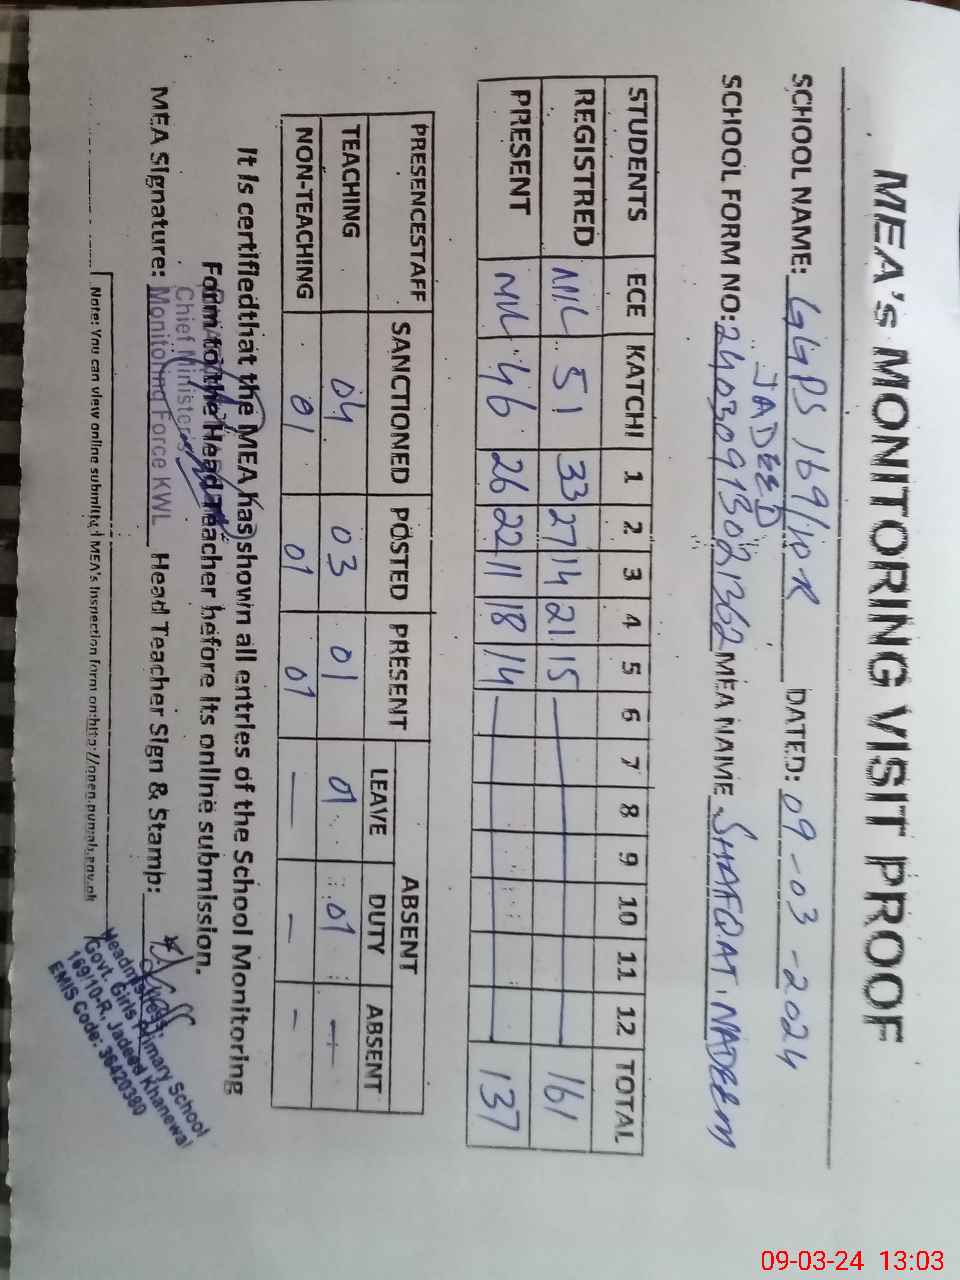 MEA's MONITORING VISIT PROOF
SCHOOL NAME: GGPS 169/10-R DATED: 09-03-2024
JADEED
SCHOOL FORM NO: 24030913021362 MEA NAME SHAFQAT. NADEEM
STUDENTS ECE KATCHI 1 2 3 4 5 6 7 8 9 10 11 12 TOTAL
REGISTRED NIL 51 33 27 14 21 15 161
PRESENT NIL 46 26 22 11 18 14 137
PRESENCESTAFF SANCTIONED POSTED PRESENT ABSENT
LEAVE DUTY ABSENT
TEACHING 04 03 01 01 01 —
NON-TEACHING 01 01 01 — — —
It is certifiedthat the MEA has shown all entries of the School Monitoring
Form to the Head Teacher before its online submission.
Chief Minister's
MEA Signature: Monitoring Force KWL Head Teacher Sign & Stamp:
Headmistress,
Govt. Girls Primary School
169/10-R, Jadeed Khanewal
EMIS Code: 36420380
Note: You can view online submitted MEA's Inspection form on:http://open.punjab.gov.pk
09-03-24 13:03